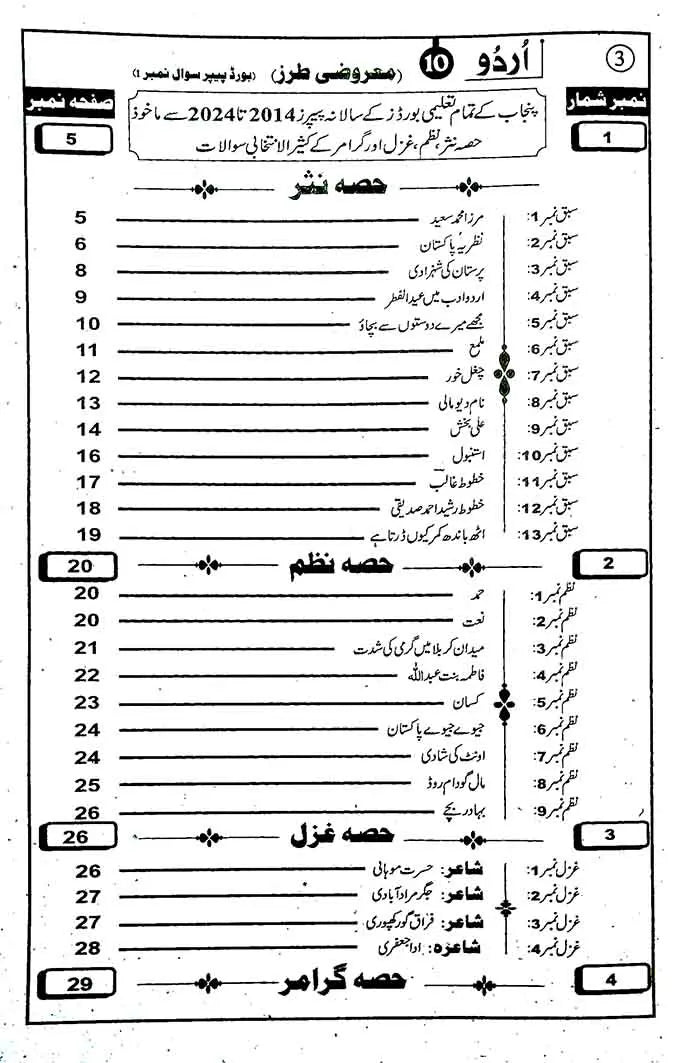 3
اُردُو 10 (معروضی طرز) (بورڈ پیپر سوال نمبر 1)
نمبر شمار
صفحہ نمبر
پنجاب کے تمام تعلیمی بورڈز کے سالانہ پیپرز 2014 تا 2024 سے ماخوذ
حصہ نثر، نظم، غزل اور گرامر کے کثیر الانتخابی سوالات
1
5
حصہ نثر
سبق نمبر 1: مرزا محمد سعید 5
سبق نمبر 2: نظریۂ پاکستان 6
سبق نمبر 3: پرستان کی شہزادی 8
سبق نمبر 4: اردو ادب میں عید الفطر 9
سبق نمبر 5: مجھے میرے دوستوں سے بچاؤ 10
سبق نمبر 6: ملمع 11
سبق نمبر 7: چغل خور 12
سبق نمبر 8: نام دیو مالی 13
سبق نمبر 9: علی بخش 14
سبق نمبر 10: استنبول 16
سبق نمبر 11: خطوط غالب 17
سبق نمبر 12: خطوط رشید احمد صدیقی 18
سبق نمبر 13: اٹھ باندھ کمر کیوں ڈرتا ہے 19
2 حصہ نظم 20
نظم نمبر 1: حمد 20
نظم نمبر 2: نعت 20
نظم نمبر 3: میدان کربلا میں گرمی کی شدت 21
نظم نمبر 4: فاطمہ بنت عبداللہ 22
نظم نمبر 5: کسان 23
نظم نمبر 6: جیوے جیوے پاکستان 24
نظم نمبر 7: اونٹ کی شادی 24
نظم نمبر 8: مال گودام روڈ 25
نظم نمبر 9: بہادر بچے 26
3 حصہ غزل 26
غزل نمبر 1: شاعر: حسرت موہانی 26
غزل نمبر 2: شاعر: جگر مراد آبادی 27
غزل نمبر 3: شاعر: فراق گورکھپوری 27
غزل نمبر 4: شاعرہ: ادا جعفری 28
4 حصہ گرامر 29